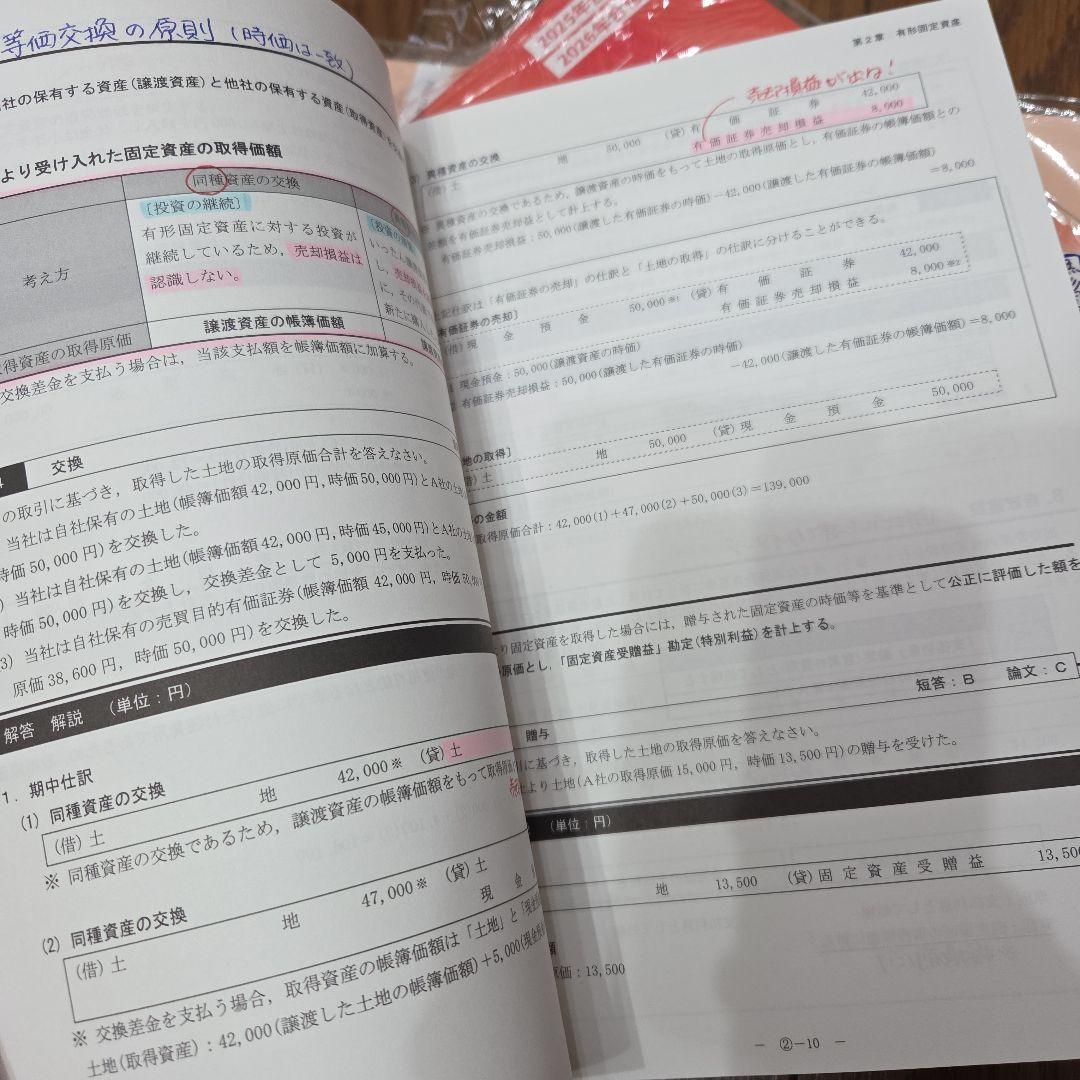 等価交換の原則（時価は一致）
社の保有する資産(譲渡資産)と他社の保有する資産(取得資産
より受け入れた固定資産の取得価額
同種資産の交換
考え方
［投資の継続］
有形固定資産に対する投資が
継続しているため，売却損益は
認識しない。
いったん
し，売却
に，その
新たに
得資産の取得原価
譲渡資産の帳簿価額
交換差金を支払う場合は，当該支払額を帳簿価額に加算する。
4 交換
の取引に基づき，取得した土地の取得原価合計を答えなさい。
当社は自社保有の土地(帳簿価額42,000円,時価50,000円)とA社の土
時価50,000円)を交換した。
) 当社は自社保有の土地(帳簿価額42,000円,時価45,000円)とA社の土
時価50,000円)を交換し，交換差金として 5,000円を支払った。
3) 当社は自社保有の売買目的有価証券(帳簿価額 42,000円，時価50,
原価38,600円，時価50,000円)を交換した。
解答 解説 （単位：円）
1．期中仕訳
(1) 同種資産の交換
(借) 土 地 42,000※ (貸) 土
※ 同種資産の交換であるため，譲渡資産の帳簿価額をもって取得原価
(2) 同種資産の交換
(借) 土 地 47,000※ (貸) 土
現 金
※ 交換差金を支払う場合，取得資産の帳簿価額は「土地」と「現金
土地(取得資産)：42,000(譲渡した土地の帳簿価額)＋5,000(現金
第２章 有形固定資産
売却損益が出る！
異種資産の交換
(借) 土 地 50,000 (貸) 有 価 証 券 42,000
有 価 証 券 売 却 損 益 8,000
異種資産の交換であるため，譲渡資産の時価をもって土地の取得原価とし，有価証券の帳簿価額との
差額を有価証券売却益として計上する。
有価証券売却損益：50,000(譲渡した有価証券の時価)－42,000(譲渡した有価証券の帳簿価額)
＝8,000
記仕訳は「有価証券の売却」の仕訳と「土地の取得」の仕訳に分けることができる。
有価証券の売却］
(借) 現 金 預 金 50,000※1 (貸) 有 価 証 券 42,000
有 価 証 券 売 却 損 益 8,000※2
現金預金：50,000(譲渡資産の時価)
有価証券売却損益：50,000(譲渡した有価証券の時価)
－42,000(譲渡した有価証券の帳簿価額)＝8,000
地の取得］
借) 土 地 50,000 (貸) 現 金 預 金 50,000
の金額
取得原価合計：42,000(1)＋47,000(2)＋50,000(3)＝139,000
り固定資産を取得した場合には，贈与された固定資産の時価等を基準として公正に評価した額を
原価とし，「固定資産受贈益」勘定(特別利益)を計上する。
贈与
短答：B 論文：C
引に基づき，取得した土地の取得原価を答えなさい。
より土地(A社の取得原価 15,000円，時価 13,500円)の贈与を受けた。
（単位：円）
地 13,500 (貸) 固 定 資 産 受 贈 益 13,50
額
原価：13,500
－ ②－10 －